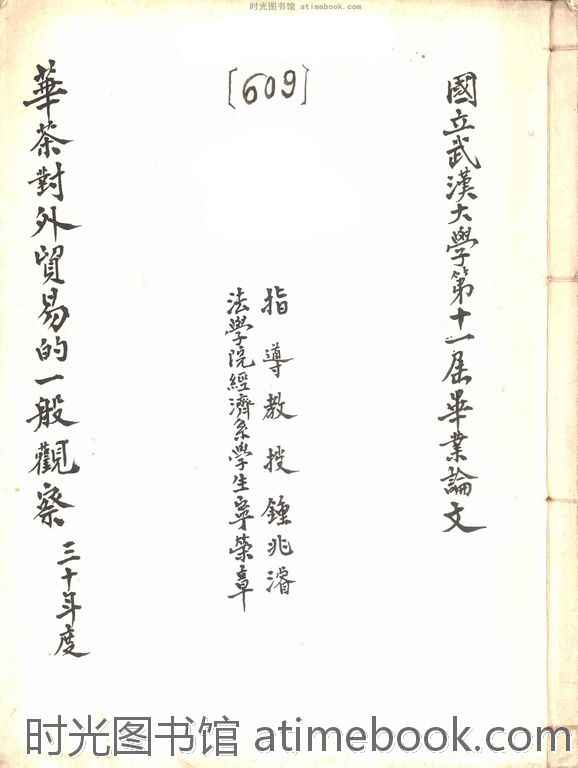 时光图书馆 atimebook.com
國立武漢大學第十一届畢業論文
[609]
指導教授鍾兆濬
法學院經濟系學生寧榮章
華茶對外貿易的一般觀察
三十年度
时光图书馆 atimebook.com